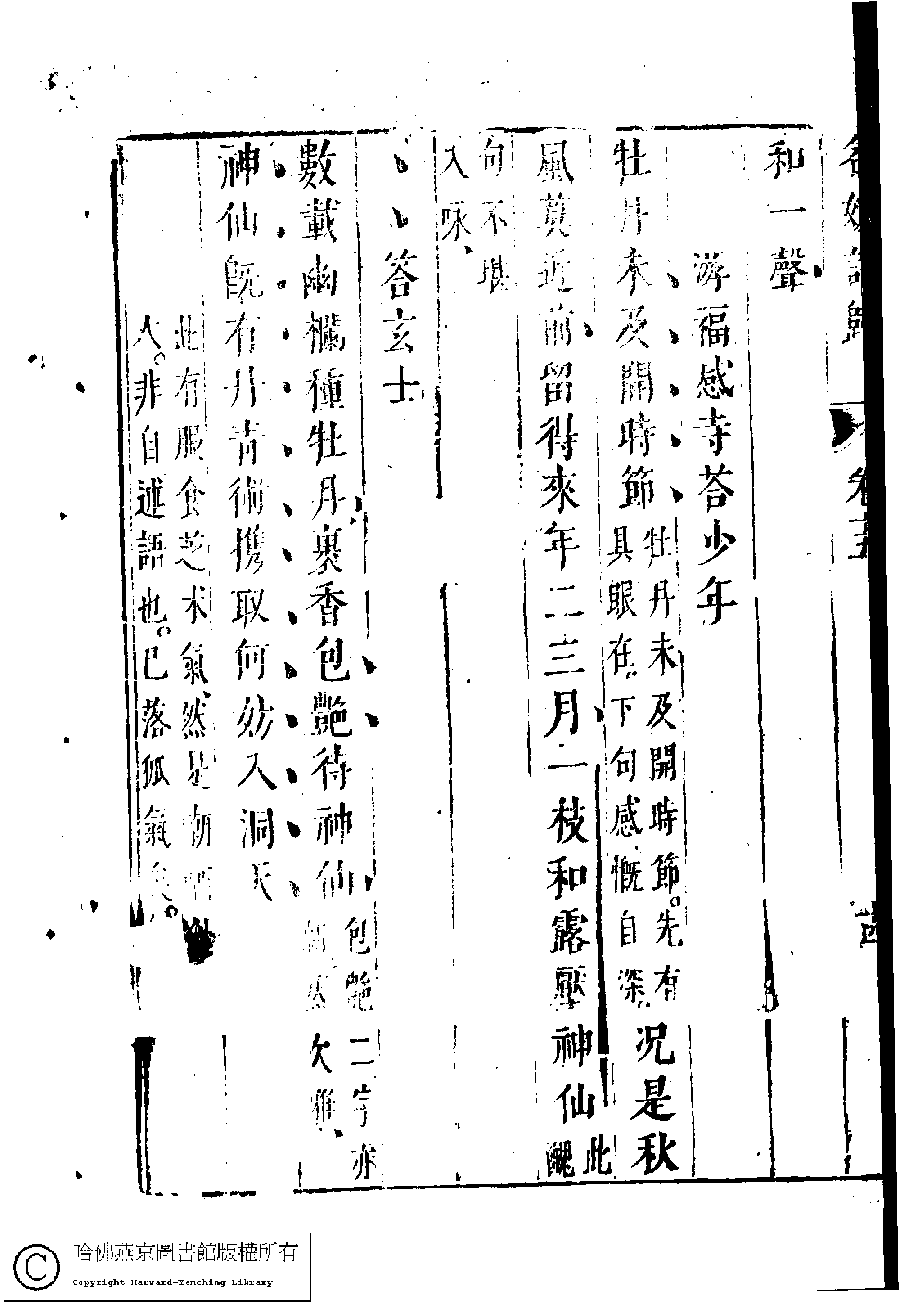 名媛詩歸 卷
和一聲
游福感寺荅少年
牡丹未及開時節
牡丹未及開時節。先有
具眼在。下句感慨自深。
况是秋
風莫近前留得來年二三月一枝和露壓神仙
此
醜
句不堪
入咏、
答玄士
數載幽襴種牡丹裹香包艷待神仙
包艷二字亦
欠雅、
神仙既有丹青術携取何妨入洞天
此有服食芝术氣、然是
人。非自述語也。已落孤氣矣。
哈佛燕京圖書館版權所有
Copyright Harvard-Yenching Library